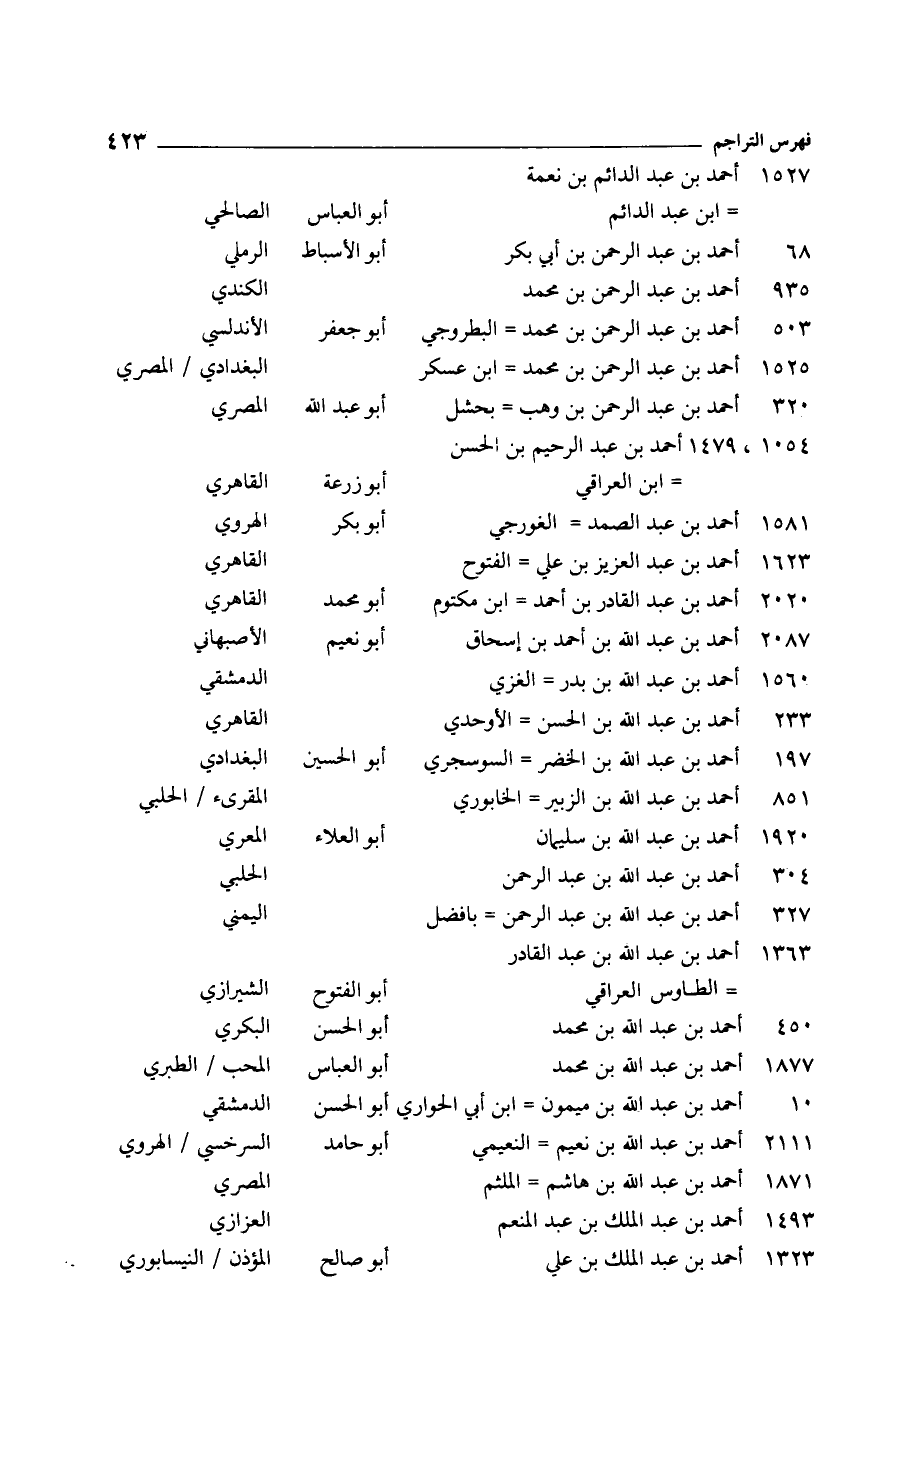 فهرس التراجم ٤٢٣
١٥٢٧ أحمد بن عبد الدائم بن نعمة
= ابن عبد الدائم أبو العباس الصالحي
٦٨ أحمد بن عبد الرحمن بن أبي بكر أبو الأسباط الرملي
٩٣٥ أحمد بن عبد الرحمن بن محمد الكندي
٥٠٣ أحمد بن عبد الرحمن بن محمد = البطروجي أبو جعفر الأندلسي
١٥٢٥ أحمد بن عبد الرحمن بن محمد = ابن عسكر البغدادي / المصري
٣٢٠ أحمد بن عبد الرحمن بن وهب = بحشل أبو عبد الله المصري
١٠٥٤ ، ١٤٧٩ أحمد بن عبد الرحيم بن الحسن
= ابن العراقي أبو زرعة القاهري
١٥٨١ أحمد بن عبد الصمد = الغورجي أبو بكر الهروي
١٦٢٣ أحمد بن عبد العزيز بن علي = الفتوح القاهري
٢٠٢٠ أحمد بن عبد القادر بن أحمد = ابن مكتوم أبو محمد القاهري
٢٠٨٧ أحمد بن عبد الله بن أحمد بن إسحاق أبو نعيم الأصبهاني
١٥٦٠ أحمد بن عبد الله بن بدر = الغزي الدمشقي
٢٣٣ أحمد بن عبد الله بن الحسن = الأوحدي القاهري
١٩٧ أحمد بن عبد الله بن الخضر = السوسجري أبو الحسين البغدادي
٨٥١ أحمد بن عبد الله بن الزبير = الخابوري المقرىء / الحلبي
١٩٢٠ أحمد بن عبد الله بن سليمان أبو العلاء المعري
٣٠٤ أحمد بن عبد الله بن عبد الرحمن الحلبي
٣٢٧ أحمد بن عبد الله بن عبد الرحمن = بافضل اليمني
١٣٦٣ أحمد بن عبد الله بن عبد القادر
= الطاوس العراقي أبو الفتوح الشيرازي
٤٥٠ أحمد بن عبد الله بن محمد أبو الحسن البكري
١٨٧٧ أحمد بن عبد الله بن محمد أبو العباس المحب / الطبري
١٠ أحمد بن عبد الله بن ميمون = ابن أبي الحواري أبو الحسن الدمشقي
٢١١١ أحمد بن عبد الله بن نعيم = النعيمي أبو حامد السرخسي / الهروي
١٨٧١ أحمد بن عبد الله بن هاشم = الملثم المصري
١٤٩٣ أحمد بن عبد الملك بن عبد المنعم العزازي
١٣٢٣ أحمد بن عبد الملك بن علي أبو صالح المؤذن / النيسابوري